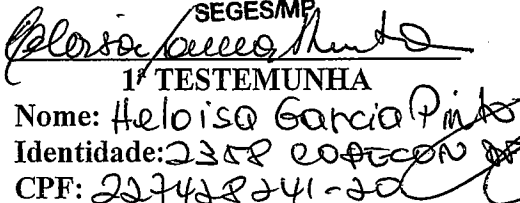 SEGES/MP
1ª TESTEMUNHA
Nome: Heloisa Garcia Pinto
Identidade: 2358 CORECON DF
CPF: 227428241-20